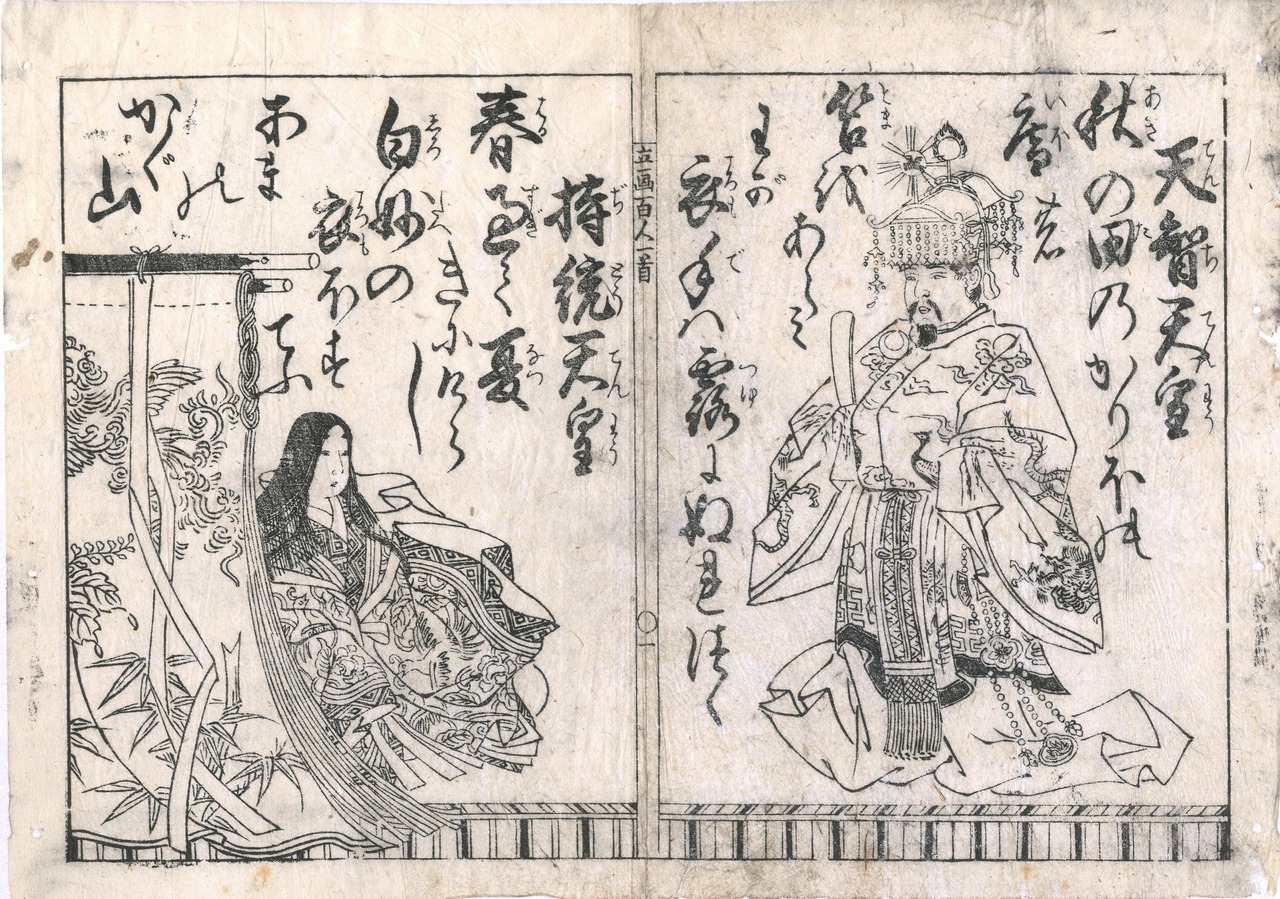 天智天皇
秋の田のかりほの
廬の
苫をあらみ
わが
衣手は露にぬれつゝ
立画百人一首
一
持統天皇
春過て夏
きにけらし
白妙の
衣ほすてふ
あまの
かぐ山